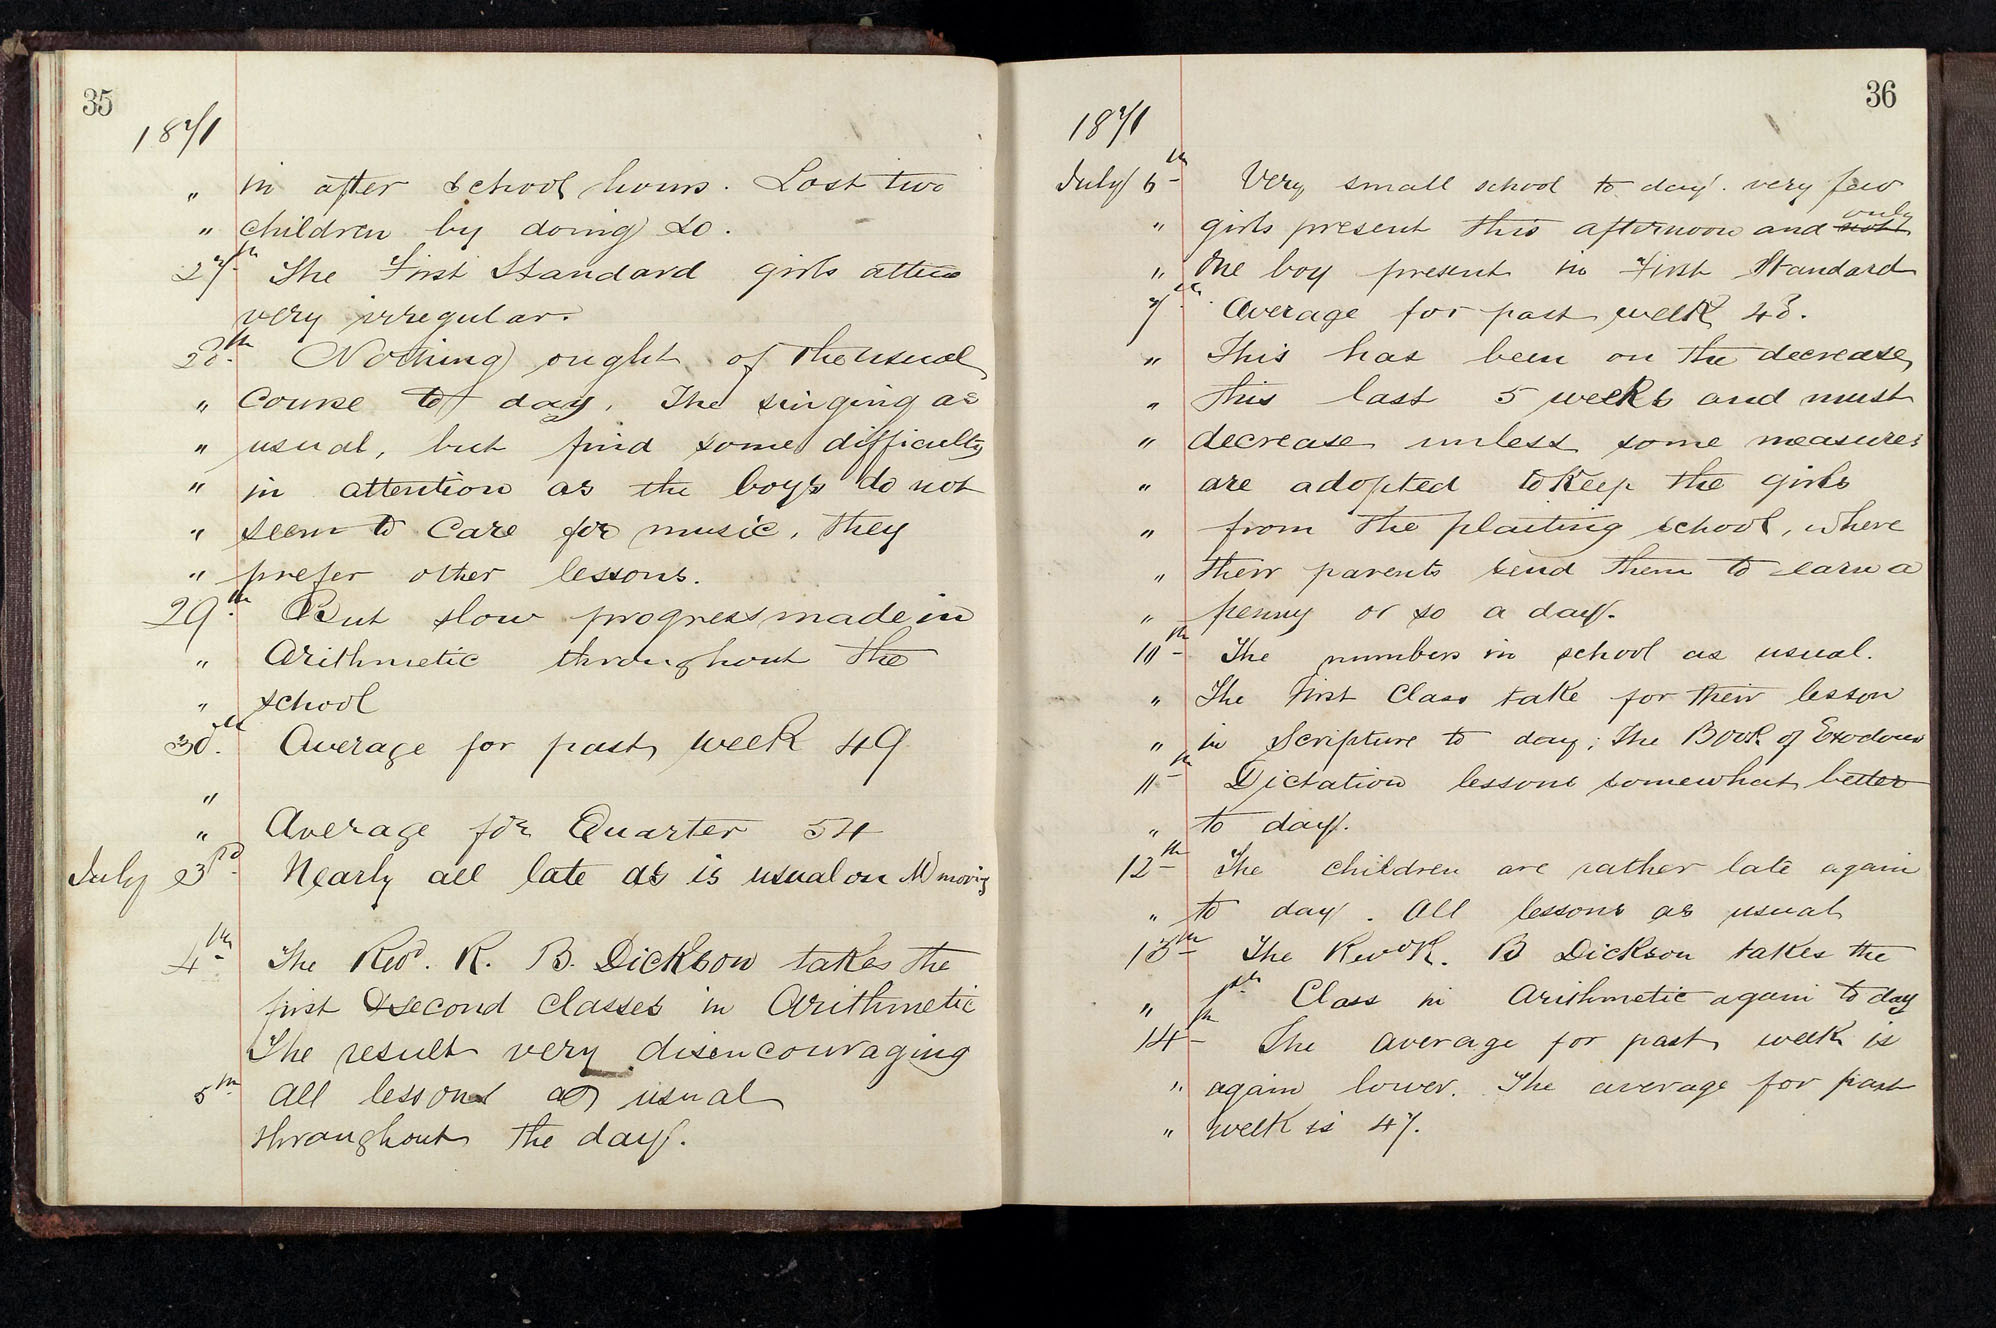 35
1871
" in after school hours. Lost two
" children by doing so.
27th The First Standard girls atten
very irregular.
28th Nothing ought of the usual
" Course to day. The singing as
" usual, but find some difficulty
" in attention as the boys do not
" seem to care for music, they
" prefer other lessons.
29th But slow progress made in
" Arithmetic throughout the
" school
30th Average for past week 49
"
" Average for Quarter 54
July 3rd Nearly all late as is usual on M morning
4th The Revd. R. B. Dickson takes the
first & second classes in Arithmetic
The result very disencouraging
5th All lessons as usual
throughout the day.
36
1871
July 6th Very small school to day. very few
" girls present this afternoon and only
" One boy present in First Standard
7th Average for past week 43.
" This has been on the decrease
" this last 5 weeks and must
" decrease unless some measures
" are adopted to keep the girls
" from the plaiting school, where
" their parents send them to earn a
" penny or so a day.
10th The numbers in school as usual.
" The First Class take for their lesson
" in Scripture to day; The Book of Exodous
11th Dictation lessons somewhat better
" to day.
12th The children are rather late again
" to day. All lessons as usual
13th The Revd R. B Dickson takes the
" 1st Class in Arithmetic again to day
14th The average for past week is
" again lower. The average for past
" week is 47.